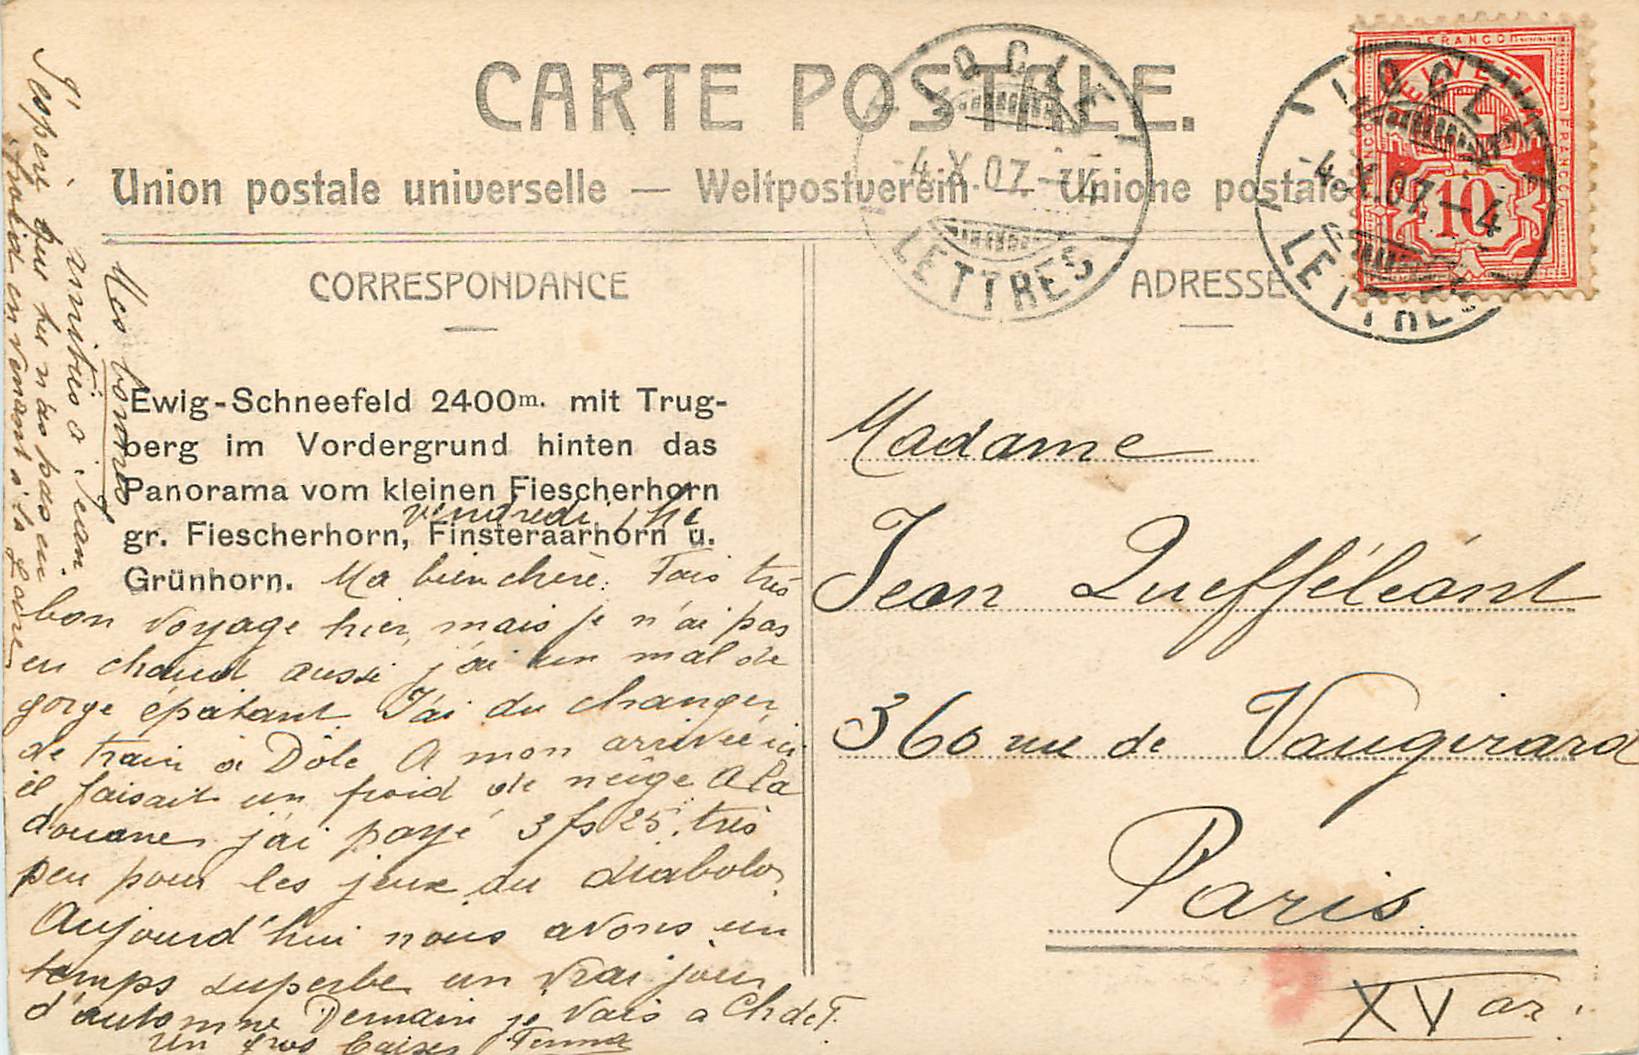 CARTE POSTALE.
Union postale universelle — Weltpostverein — Unione postale
LOCLE
4.X.07.-4
LETTRES
LOCLE
-4.X.07.-4
LETTRES
FRANCO
HELVETIA
10
CORRESPONDANCE
ADRESSE
Ewig-Schneefeld 2400m. mit Trug-
berg im Vordergrund hinten das
Panorama vom kleinen Fiescherhorn
gr. Fiescherhorn, Finsteraarhorn u.
Grünhorn.
vendredi
Ma bien chère. Fais très
bon voyage hier, mais je n'ai pas
eu chaud aussi j'ai un mal de
gorge épatant J'ai du changer
de train à Dôle A mon arrivée ici
il faisait un froid de neige A la
douane j'ai payé 3 fs 25. très
peu pour les jeux du diabolo.
Aujourd'hui nous avons un
temps superbe un vrai jour
d'automne Demain je vais a Ch de F.
Un gros baiser
J'espère que tu n'as pas eu
froid en venant à la gare
Mes bonnes
amitiés à Jean
Madame
Jean Queffeléant
360 rue de Vaugirard
Paris
XV ar.